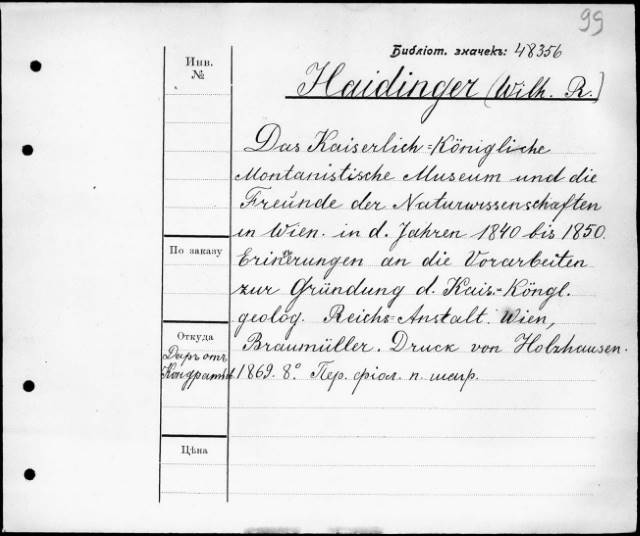 99
Библіот. значекъ: 48356
Инв.
№
Haidinger (Wilh. R.)
Das Kaiserlich-Königliche
Montanistische Museum und die
Freunde der Naturwissenschaften
in Wien. in d. Jahren 1840 bis 1850.
По заказу
Erinerungen an die Vorarbeiten
zur Gründung d. Kais.-Köngl.
geolog. Reichs-Anstalt. Wien,
Откуда
Braumüller. Druck von Holzhausen.
Даръ отъ
1869. 8° Пер. фіол. п. шагр.
Цѣна